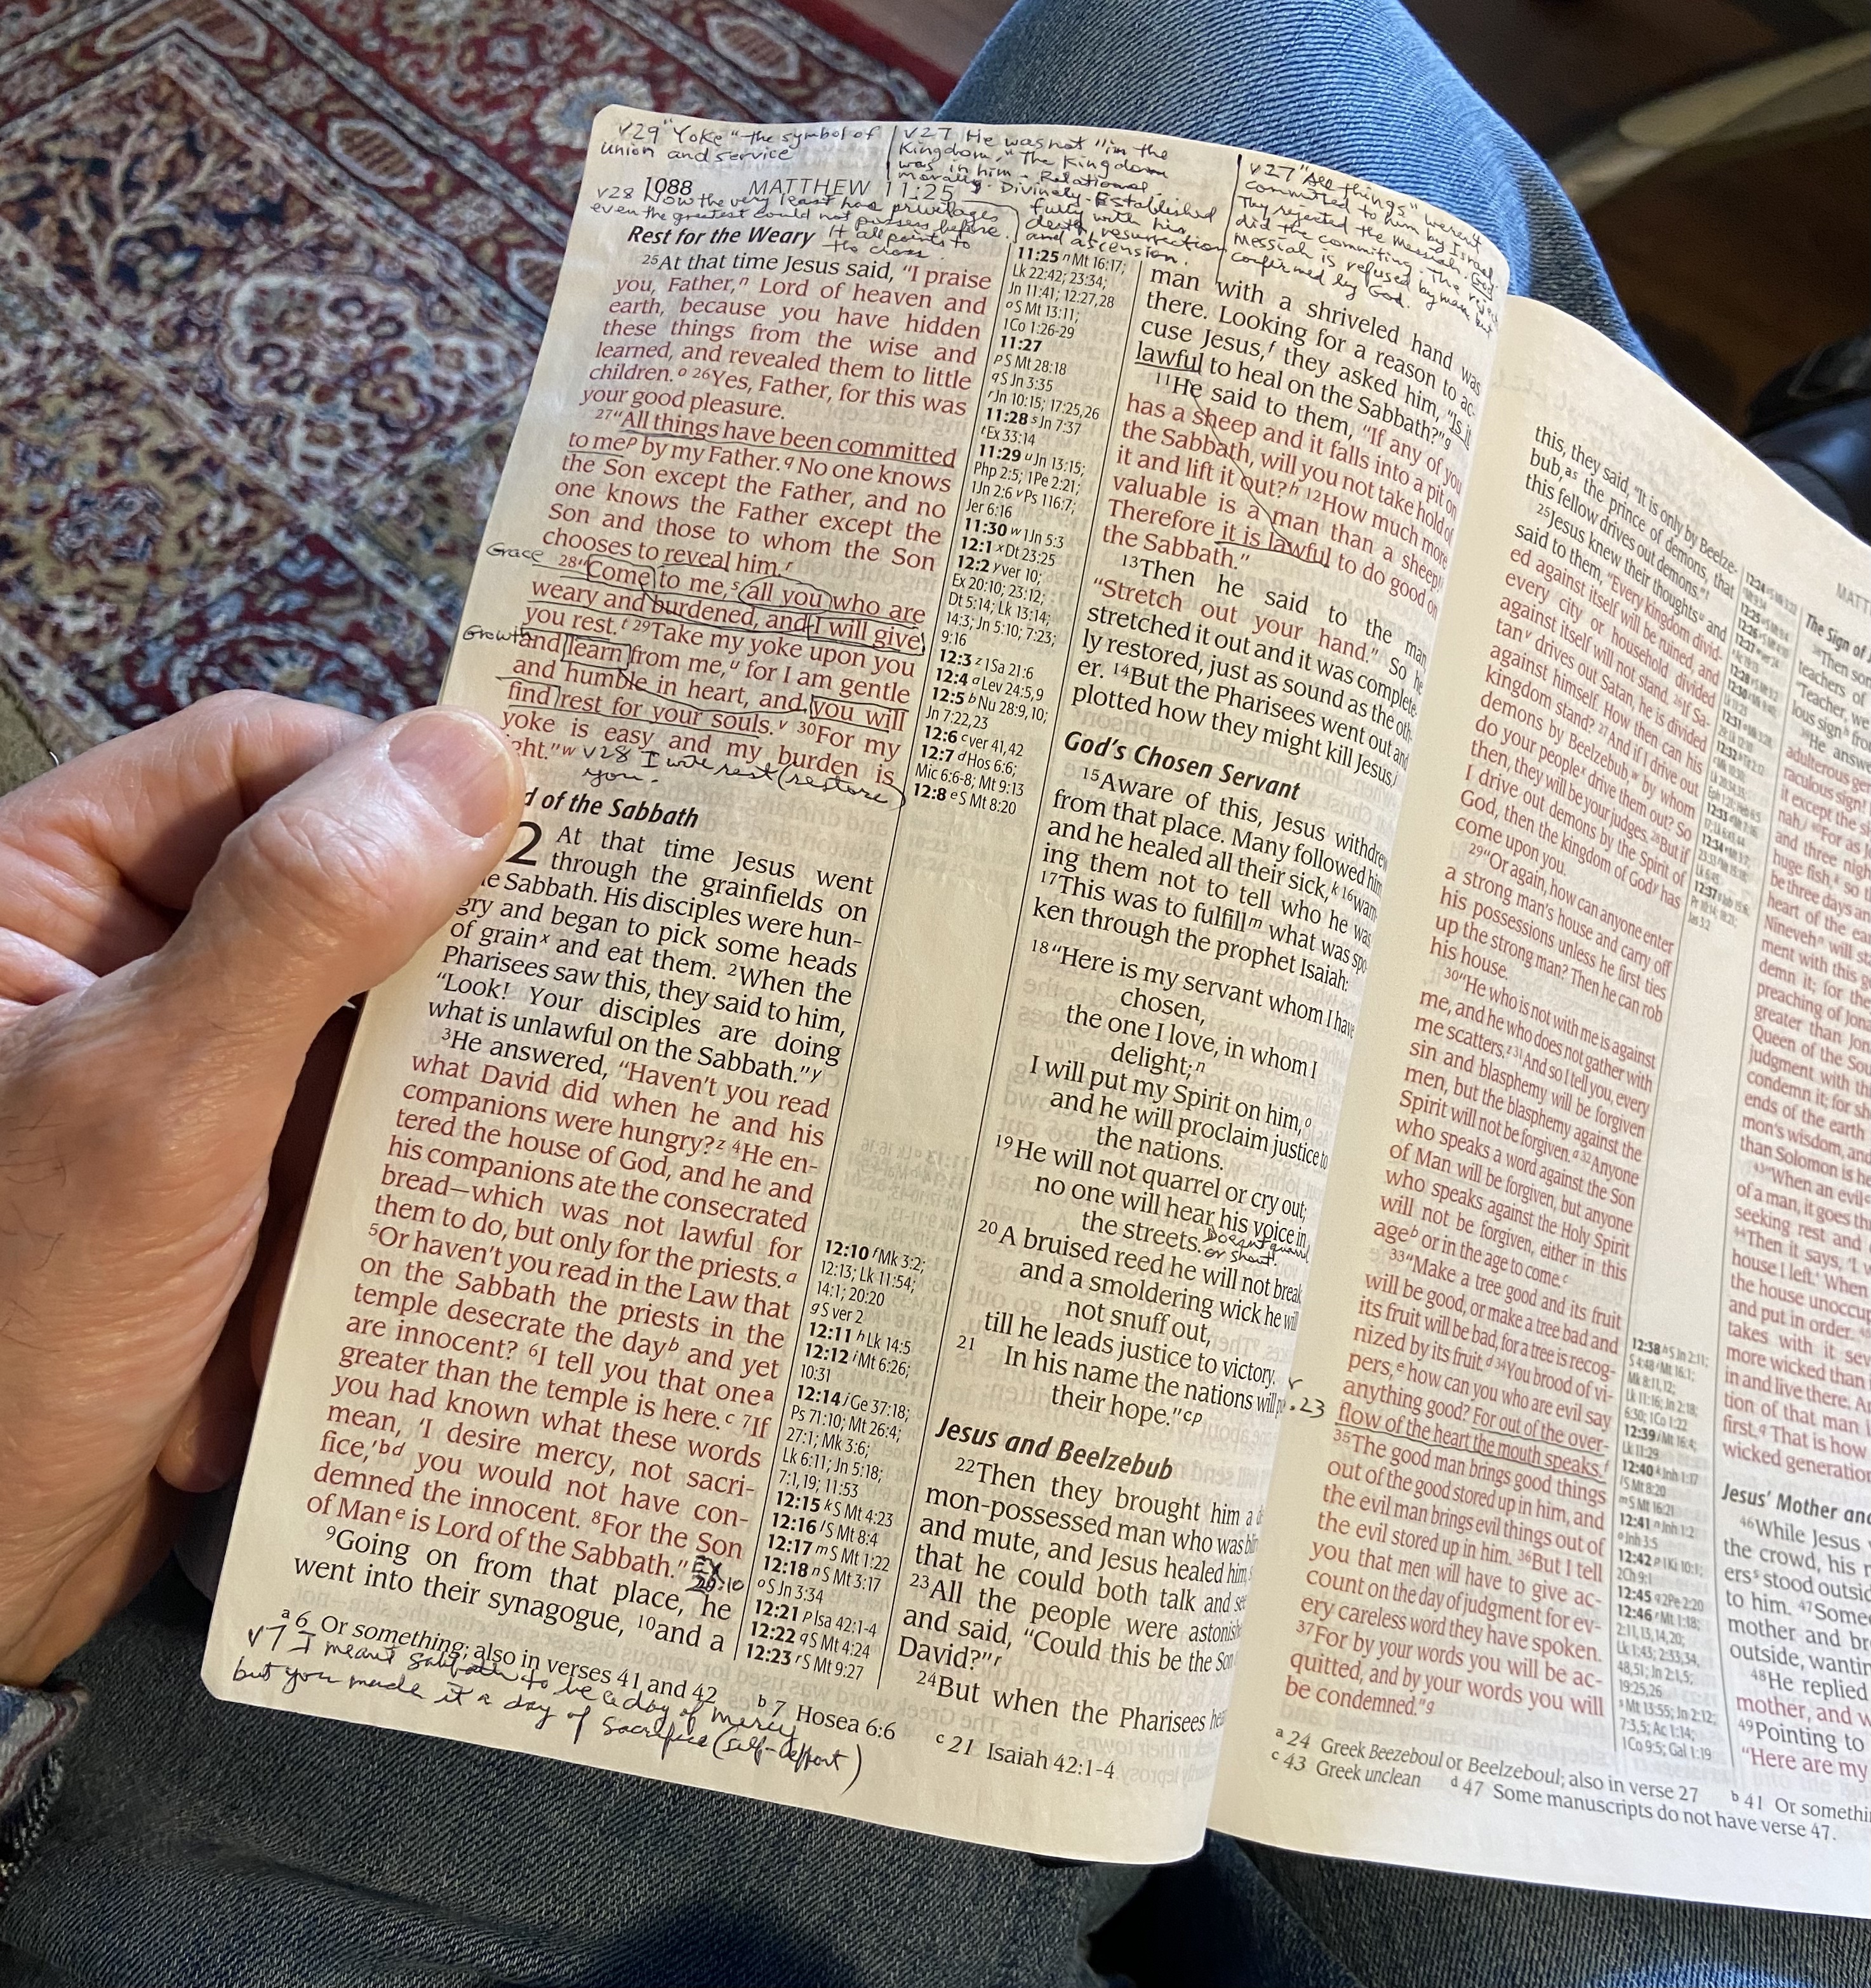 v29 "Yoke" - the symbol of
union and service
v27 He was not "in the
Kingdom." The Kingdom
was in him - Relational.
morally. Divinely. Established
fully with his
death, resurrection
and ascension.
v27 "All things" weren't
committed to him by Israel.
They rejected the Messiah. God
did the commiting. The reject
Messiah is refused by man but
confirmed by God.
1088 MATTHEW 11:25
v28 Now the very least has privelages
even the greatest could not possess before.
It all points to
the cross.
Rest for the Weary
25At that time Jesus said, "I praise
you, Father,n Lord of heaven and
earth, because you have hidden
these things from the wise and
learned, and revealed them to little
children.o 26Yes, Father, for this was
your good pleasure.
27"All things have been committed
to mep by my Father.q No one knows
the Son except the Father, and no
one knows the Father except the
Son and those to whom the Son
chooses to reveal him.r
Grace
28"Come to me,s all you who are
weary and burdened, and I will give
you rest.t 29Take my yoke upon you
Growth
and learn from me,u for I am gentle
and humble in heart, and you will
find rest for your souls.v 30For my
yoke is easy and my burden is
ght."w v28 I will rest (restore
you.
d of the Sabbath
2 At that time Jesus went
through the grainfields on
e Sabbath. His disciples were hun-
gry and began to pick some heads
of grainx and eat them. 2When the
Pharisees saw this, they said to him,
"Look! Your disciples are doing
what is unlawful on the Sabbath."y
3He answered, "Haven't you read
what David did when he and his
companions were hungry?z 4He en-
tered the house of God, and he and
his companions ate the consecrated
bread—which was not lawful for
them to do, but only for the priests.a
5Or haven't you read in the Law that
on the Sabbath the priests in the
temple desecrate the dayb and yet
are innocent? 6I tell you that onea
greater than the temple is here.c 7If
you had known what these words
mean, 'I desire mercy, not sacri-
fice,'bd you would not have con-
demned the innocent. 8For the Son
of Mane is Lord of the Sabbath."
Ex
20:10
9Going on from that place, he
went into their synagogue, 10and a
11:25 n Mt 16:17;
Lk 22:42; 23:34;
Jn 11:41; 12:27,28
o S Mt 13:11;
1Co 1:26-29
11:27
p S Mt 28:18
q S Jn 3:35
r Jn 10:15; 17:25,26
11:28 s Jn 7:37
t Ex 33:14
11:29 u Jn 13:15;
Php 2:5; 1Pe 2:21;
1Jn 2:6 v Ps 116:7;
Jer 6:16
11:30 w 1Jn 5:3
12:1 x Dt 23:25
12:2 y ver 10;
Ex 20:10; 23:12;
Dt 5:14; Lk 13:14;
14:3; Jn 5:10; 7:23;
9:16
12:3 z 1Sa 21:6
12:4 a Lev 24:5,9
12:5 b Nu 28:9,10;
Jn 7:22,23
12:6 c ver 41,42
12:7 d Hos 6:6;
Mic 6:6-8; Mt 9:13
12:8 e S Mt 8:20
12:10 f Mk 3:2;
12:13; Lk 11:54;
14:1; 20:20
g S ver 2
12:11 h Lk 14:5
12:12 i Mt 6:26;
10:31
12:14 j Ge 37:18;
Ps 71:10; Mt 26:4;
27:1; Mk 3:6;
Lk 6:11; Jn 5:18;
7:1,19; 11:53
12:15 k S Mt 4:23
12:16 l S Mt 8:4
12:17 m S Mt 1:22
12:18 n S Mt 3:17
o S Jn 3:34
12:21 p Isa 42:1-4
12:22 q S Mt 4:24
12:23 r S Mt 9:27
man with a shriveled hand was
there. Looking for a reason to ac-
cuse Jesus,f they asked him, "Is it
lawful to heal on the Sabbath?"g
11He said to them, "If any of you
has a sheep and it falls into a pit on
the Sabbath, will you not take hold of
it and lift it out?h 12How much more
valuable is a man than a sheep!i
Therefore it is lawful to do good on
the Sabbath."
13Then he said to the man,
"Stretch out your hand." So he
stretched it out and it was complete-
ly restored, just as sound as the oth-
er. 14But the Pharisees went out and
plotted how they might kill Jesus.j
God's Chosen Servant
15Aware of this, Jesus withdrew
from that place. Many followed him,
and he healed all their sick,k 16warn-
ing them not to tell who he was.
17This was to fulfillm what was spo-
ken through the prophet Isaiah:
18"Here is my servant whom I have
chosen,
the one I love, in whom I
delight;n
I will put my Spirit on him,o
and he will proclaim justice to
the nations.
19He will not quarrel or cry out;
no one will hear his voice in
the streets. Doesn't quarrel
or shout.
20A bruised reed he will not break,
and a smoldering wick he will
not snuff out,
till he leads justice to victory.
21 In his name the nations will
their hope."cp
v.23
Jesus and Beelzebub
22Then they brought him a de-
mon-possessed man who was blin
and mute, and Jesus healed him,
that he could both talk and see
23All the people were astonish
and said, "Could this be the Son
David?"r
24But when the Pharisees hea
a 6 Or something; also in verses 41 and 42 b 7 Hosea 6:6
c 21 Isaiah 42:1-4
v7 I meant Sabbath to be a day of mercy
but you made it a day of Sacrifice (self-effort)
this, they said, "It is only by Beelze-
bub,as the prince of demons, that
this fellow drives out demons."t
25Jesus knew their thoughtsu and
said to them, "Every kingdom divid-
ed against itself will be ruined, and
every city or household divided
against itself will not stand. 26If Sa-
tanv drives out Satan, he is divided
against himself. How then can his
kingdom stand? 27And if I drive out
demons by Beelzebub,w by whom
do your peoplex drive them out? So
then, they will be your judges. 28But if
I drive out demons by the Spirit of
God, then the kingdom of Gody has
come upon you.
29"Or again, how can anyone enter
a strong man's house and carry off
his possessions unless he first ties
up the strong man? Then he can rob
his house.
30"He who is not with me is against
me, and he who does not gather with
me scatters.z 31And so I tell you, every
sin and blasphemy will be forgiven
men, but the blasphemy against the
Spirit will not be forgiven.a 32Anyone
who speaks a word against the Son
of Man will be forgiven, but anyone
who speaks against the Holy Spirit
will not be forgiven, either in this
ageb or in the age to come.c
33"Make a tree good and its fruit
will be good, or make a tree bad and
its fruit will be bad, for a tree is recog-
nized by its fruit.d 34You brood of vi-
pers,e how can you who are evil say
anything good? For out of the over-
flow of the heart the mouth speaks.f
35The good man brings good things
out of the good stored up in him, and
the evil man brings evil things out of
the evil stored up in him. 36But I tell
you that men will have to give ac-
count on the day of judgment for ev-
ery careless word they have spoken.
37For by your words you will be ac-
quitted, and by your words you will
be condemned."g
12:38 h S Jn 2:11;
S 4:48 i Mt 16:1;
Mk 8:11,12;
Lk 11:16; Jn 2:18;
6:30; 1Co 1:22
12:39 j Mt 16:4;
Lk 11:29
12:40 k Jnh 1:17
l S Mt 8:20
m S Mt 16:21
12:41 n Jnh 1:2
o Jnh 3:5
12:42 p 1Ki 10:1;
2Ch 9:1
12:45 q 2Pe 2:20
12:46 r Mt 1:18;
2:11,13,14,20;
Lk 1:43; 2:33,34,
48,51; Jn 2:1,5;
19:25,26
s Mt 13:55; Jn 2:12;
7:3,5; Ac 1:14;
1Co 9:5; Gal 1:19
MATT
The Sign of
38Then som
teachers of
"Teacher, we
lous sign
39He answe
adulterous ge
raculous sign!
it except the s
nah.j 40For as J
and three nigh
huge fish,k so
be three days an
heart of the ea
Ninevehn will sta
ment with this g
demn it; for the
preaching of Jon
greater than Jon
Queen of the Sou
judgment with th
condemn it; for sh
ends of the earth
mon's wisdom, and
than Solomon is he
43"When an evil
of a man, it goes th
seeking rest and
44Then it says, 'I w
house I left.' When
the house unoccu
and put in order.
takes with it sev
more wicked than
in and live there. An
tion of that man
first.q That is how
wicked generation
Jesus' Mother and
46While Jesus
the crowd, his
erss stood outsid
to him. 47Some
mother and br
outside, wantin
48He replied
mother, and w
49Pointing to
"Here are my
a 24 Greek Beezeboul or Beelzeboul; also in verse 27 b 41 Or somethi
c 43 Greek unclean d 47 Some manuscripts do not have verse 47.